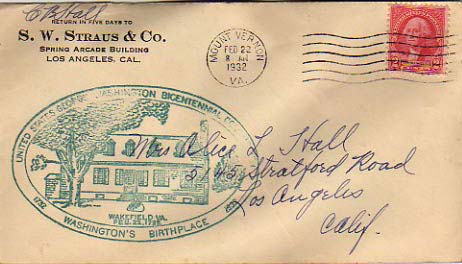 C B Hall
RETURN IN FIVE DAYS TO
S. W. STRAUS & CO.
SPRING ARCADE BUILDING
LOS ANGELES, CAL.
MOUNT VERNON
FEB 22
8 AM
1932
VA.
UNITED STATES GEORGE WASHINGTON BICENTENNIAL
1732
WAKEFIELD, VA.
FEB. 22, 1732
WASHINGTON'S BIRTHPLACE
Mrs Alice L Hall
2145 Stratford Road
Los Angeles
Calif.